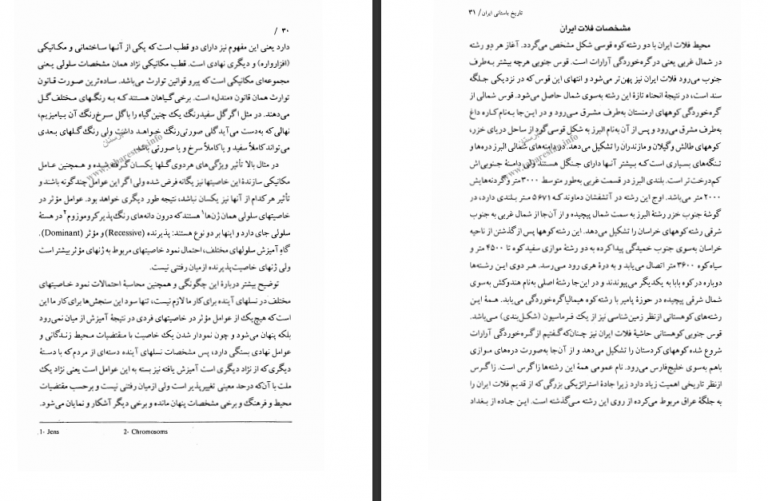 ۳۰ /
دارد یعنی این مفهوم نیز دارای دو قطب است که یکی از آنها ساختمانی و مکانیکی
(افزارواره) و دیگری نهادی است. قطب مکانیکی نژاد همان مشخصات سلولی یعنی
مجموعه‌ای مکانیکی است که پیرو قوانین توارث می‌باشد. ساده‌ترین صورت قانون
توارث همان قانون «مندل» است. برخی گیاهان هستند که به رنگهای مختلف گل
می‌دهند. در مثل اگر گل سفید رنگ یک چنین گیاه را با گل سرخ رنگ آن بیامیزیم،
نهالی که به‌دست می‌آید گلی صورتی رنگ خواهد داشت ولی رنگ گلهای بعدی
می‌تواند کاملاً سفید و یا کاملاً سرخ و یا صورتی باشد.
در مثال بالا تأثیر ویژگی‌های هر دوی گلها یکسان گرفته شده و همچنین عامل
مکانیکی سازندهٔ این خاصیتها نیز یگانه فرض شده ولی اگر این عوامل چندگونه باشند و
تأثیر هرکدام از آنها نیز یکسان نباشد، نتیجه طور دیگری خواهد بود. عوامل مؤثر در
خاصیتهای سلولی همان ژن‌ها۱ هستند که درون دانه‌های رنگ‌پذیر کروموزوم۲ در هستهٔ
سلولی جای دارد و اینها بر دو نوع هستند: پذیرنده (Recessive) و مؤثر (Dominant).
گاه آمیزش سلولهای مختلف، احتمال نمود خاصیتهای مربوط به ژنهای مؤثر بیشتر است
ولی ژنهای خاصیت‌پذیرنده از میان رفتنی نیست.
توضیح بیشتر دربارهٔ این چگونگی و همچنین محاسبهٔ احتمالات نمود خاصیتهای
مختلف در نسلهای آینده برای کار ما لازم نیست، تنها سود این سنجش‌ها برای کار ما این
است که هیچ‌یک از عوامل مؤثر در خاصیتهای فردی در نتیجهٔ آمیزش از میان نمی‌رود
بلکه پنهان می‌شود و چون نمودار شدن یک خاصیت با مقتضیات محیط زندگانی و
عوامل نهادی بستگی دارد، پس مشخصات نسلهای آینده دسته‌ای از مردم که با دستهٔ
دیگری که از نژاد دیگری است آمیزش یافته نیز بسته به این عوامل است یعنی نژاد یک
ملت با آن‌که در حد معینی تغییرپذیر است ولی از میان رفتنی نیست و برحسب مقتضیات
محیط و فرهنگ و برخی مشخصات پنهان مانده و برخی دیگر آشکار و نمایان می‌شود.
1- Jens    2- Chromosoms
تاریخ باستانی ایران / ۳۱
مشخصات فلات ایران
محیط فلات ایران با دو رشته کوه قوسی شکل مشخص می‌گردد. آغاز هر دو رشته
در شمال غربی یعنی در گره‌خوردگی آرارات است. قوس جنوبی هرچه بیشتر به‌طرف
جنوب می‌رود فلات ایران نیز پهن‌تر می‌شود و انتهای این قوس که در نزدیکی جلگه
سند است، در نتیجهٔ انحناء تازه این رشته به‌سوی شمال حاصل می‌شود. قوس شمالی از
گره‌خوردگی کوههای ارمنستان به‌طرف مشرق می‌رود و در این‌جا به‌نام کاره داغ
به‌طرف مشرق می‌رود و پس از آن به‌نام البرز به شکل قوسی گود از ساحل دریای خزر،
کوههای طالش و گیلان و مازندران را تشکیل می‌دهد. در دامنه‌های شمالی البرز دره‌ها و
تنگه‌های بسیاری است که بیشتر آنها دارای جنگل هستند ولی دامنهٔ جنوبی‌اش
کم‌درخت‌تر است. بلندی البرز در قسمت غربی به‌طور متوسط ۳۰۰۰ متر و گردنه‌هایش
۲۰۰۰ متر می‌باشد. اوج این رشته در آتشفشان دماوند که ۵۶۷۱ متر بلندی دارد، در
گوشهٔ جنوب خزر رشتهٔ البرز به سمت شمال پیچیده و از آن‌جا از شمال غربی به جنوب
شرقی رشته کوههای خراسان را تشکیل می‌دهد. این رشته کوهها پس از گذشتن از ناحیه
خراسان به‌سوی جنوب خمیدگی پیدا کرده به دو رشتهٔ موازی سفیدکوه تا ۴۵۰۰ متر و
سیاه‌کوه ۳۶۰۰ متر اتصال می‌یابد و به درهٔ هری رود می‌رسد. هر دوی این رشته‌ها
دوباره در کوه بابا به یکدیگر می‌پیوندند و در این‌جا رشتهٔ اصلی به‌نام هندوکش به‌سوی
شمال شرقی پیچیده در حوزهٔ پامیر با رشته کوه هیمالیا گره‌خوردگی می‌یابد. همهٔ این
رشته‌های کوهستانی ازنظر زمین‌شناسی نیز از یک فرماسیون (شکل‌بندی) می‌باشد.
قوس جنوبی کوهستانی حاشیهٔ فلات ایران نیز چنان‌که گفتیم از گره‌خوردگی آرارات
شروع شده کوههای کردستان را تشکیل می‌دهد و از آن‌جا به‌صورت دره‌های موازی
باهم به‌سوی خلیج‌فارس می‌رود. نام عمومی همهٔ این رشته‌ها زاگرس است. زاگرس
ازنظر تاریخی اهمیت زیاد دارد زیرا جادهٔ استراتژیکی بزرگی که از قدیم فلات ایران را
به جلگهٔ عراق مربوط می‌کرده از روی این رشته می‌گذشته است. این جاده از بغداد